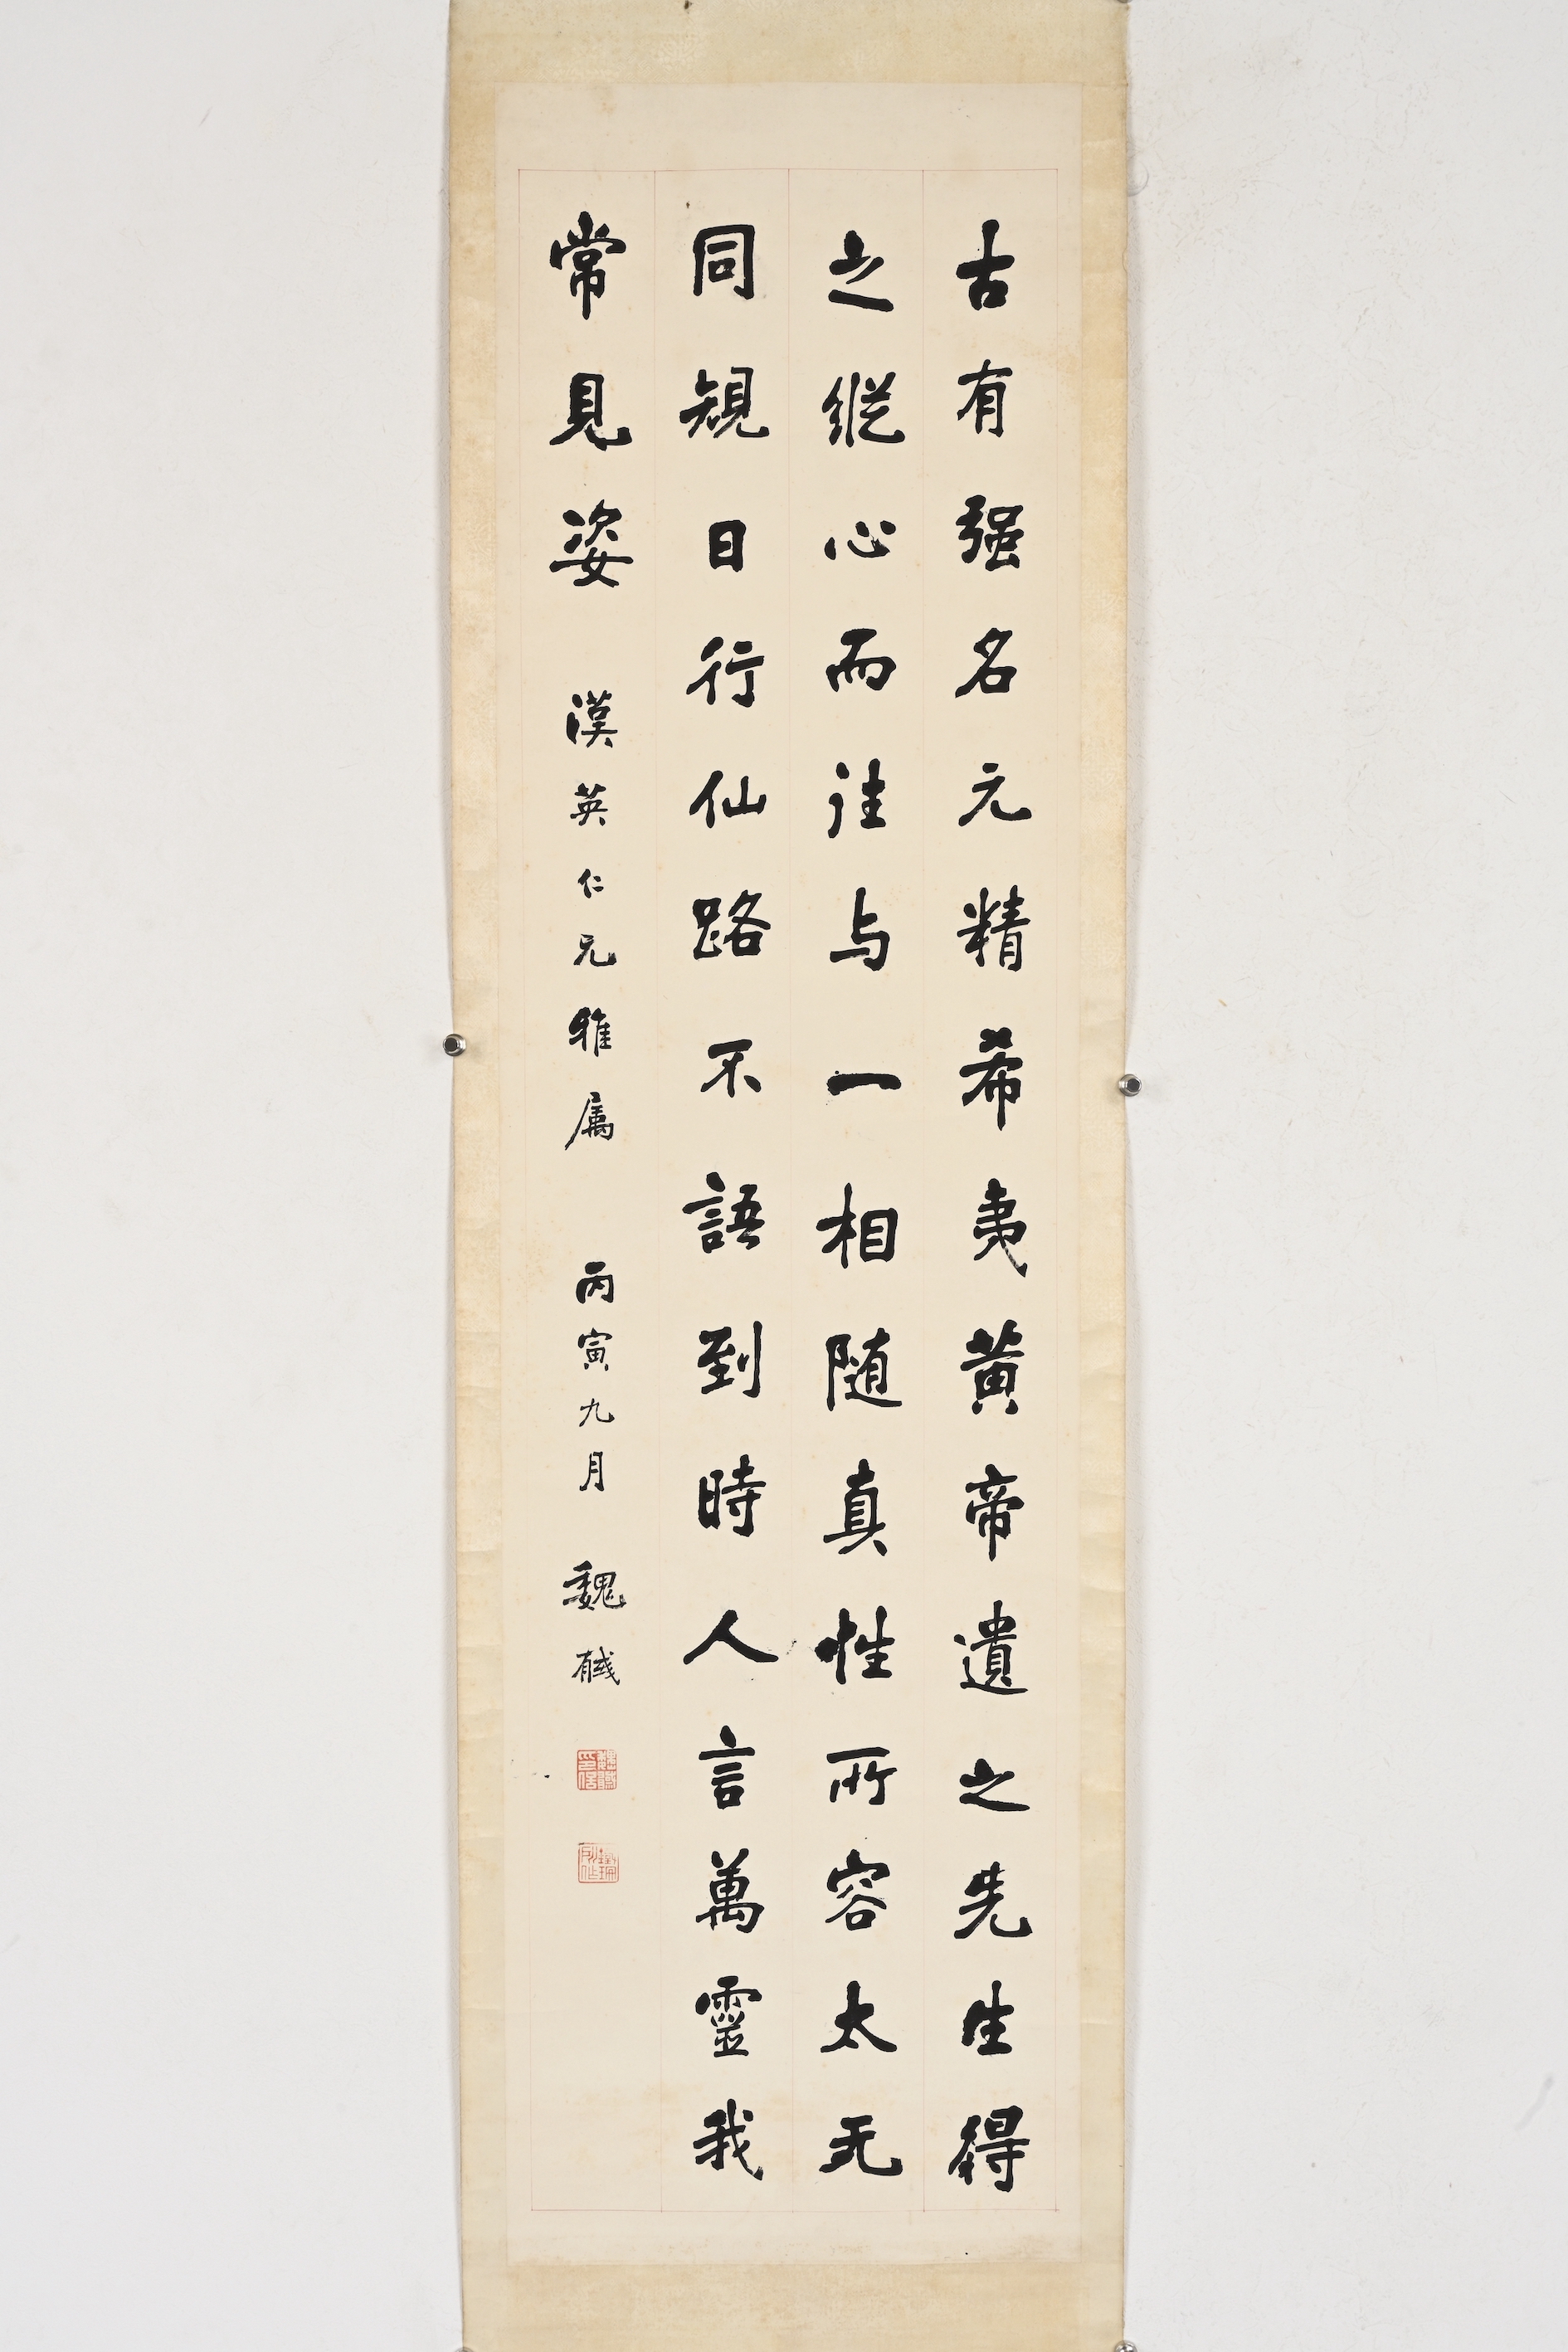 古有强名元精希夷黄帝遺之先生得
之縱心而往与一相随真性所容太无
同規日行仙路不語到時人言萬靈我
常見姿 漢英仁兄雅属 丙寅九月 魏戫
魏戫印信